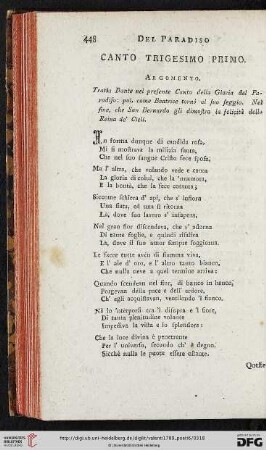 448 DEL PARADISO
CANTO TRIGESIMO PRIMO.
ARGOMENTO.
Tratta Dante nel presente Canto della Gloria del Pa-
radiso: poi, come Beatrice tornò al suo seggio. Nel
fine, che San Bernardo gli dimostra la felicità della
Reina de' Cieli.
In forma dunque di candida rosa,
Mi si mostrava la milizia santa,
Che nel suo sangue Cristo fece sposa;
Ma l' altra, che volando vede e canta
La gloria di colui, che la 'nnamora,
E la bontà, che la fece cotanta;
Siccome schiera d' api, che s' infiora
Una fiata, ed una si ritorna
Là, dove suo lavoro s' insapora,
Nel gran fior discendeva, che s' adorna
Di tante foglie, e quindi risaliva
Là, dove il suo amor sempre soggiorna.
Le facce tutte avén di fiamma viva,
E l' ale d' oro, e l' altro tanto bianco,
Che nulla neve a quel termine arriva:
Quando scendean nel fior, di banco in banco,
Porgevan della pace e dell' ardore,
Ch' egli acquistavan, ventilando 'l fianco.
Nè lo 'nterporsi tra 'l disopra e 'l fiore,
Di tanta plenitudine volante
Impediva la vista e lo splendore:
Che la luce divina è penetrante
Per l' universo, secondo ch' è degno,
Sicchè nulla le puote essere ostante.
UNIVERSITÄTS-
BIBLIOTHEK
HEIDELBERG
http://digi.ub.uni-heidelberg.de/diglit/
© Universitätsbibliothek Heidelberg
gefördert durch die
DFG